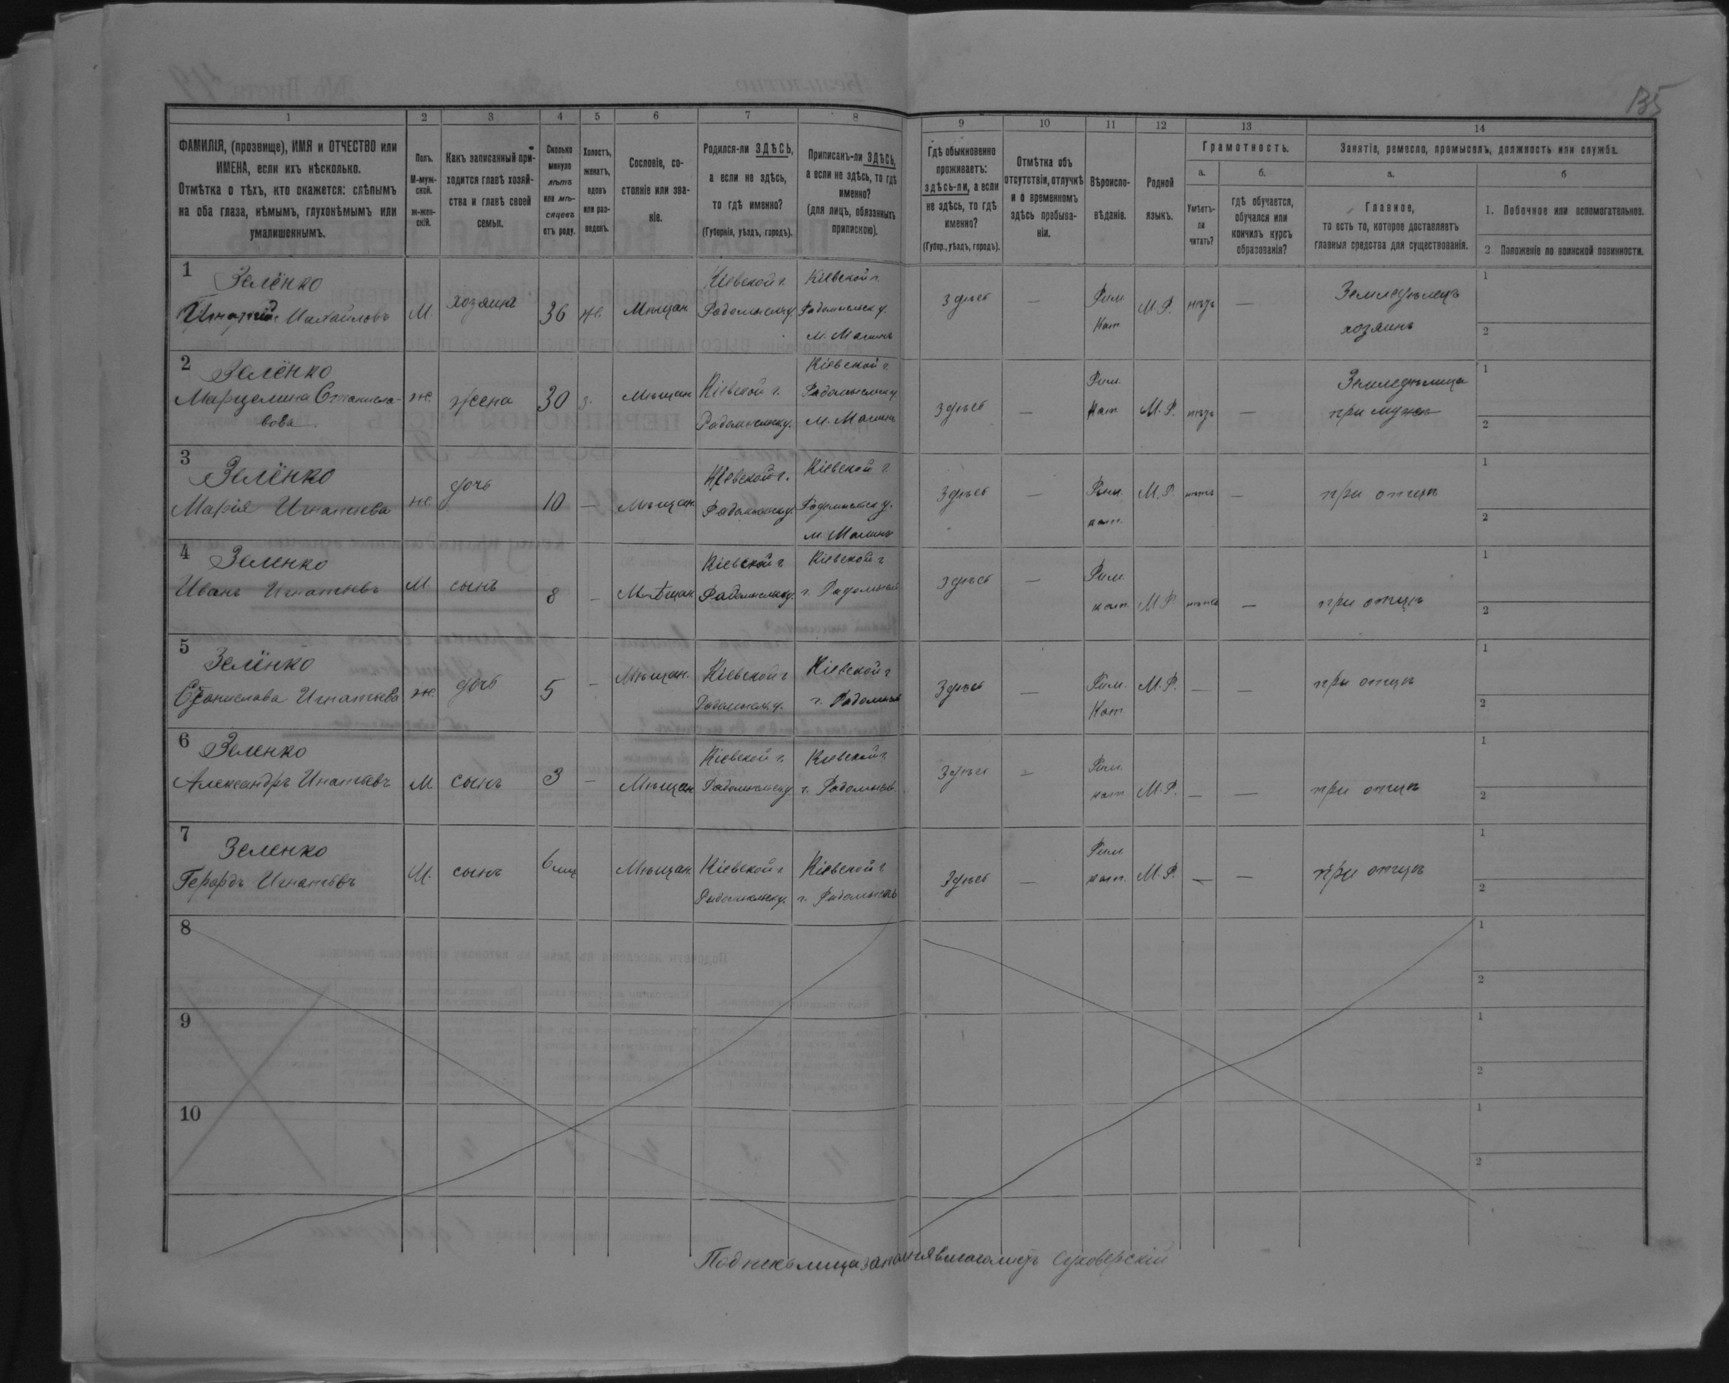 135
1 2 3 4 5 6 7 8 9 10 11 12 13 14
ФАМИЛІЯ, (прозвище), ИМЯ и ОТЧЕСТВО или
ИМЕНА, если ихъ нѣсколько.
Отмѣтка о тѣхъ, кто окажется: слѣпымъ
на оба глаза, нѣмымъ, глухонѣмымъ или
умалишеннымъ.
Полъ.
М-муж-
ской.
ж-жен-
скій.
Какъ записанный при-
ходится главѣ хозяй-
ства и главѣ своей
семьи.
Сколько
минуло
лѣтъ
или мѣ-
сяцевъ
отъ роду.
Холостъ,
женатъ,
вдовъ
или раз-
веденъ.
Сословіе, со-
стояніе или зва-
ніе.
Родился-ли ЗДѢСЬ,
а если не здѣсь,
то гдѣ именно?
(Губернія, уѣздъ, городъ).
Приписанъ-ли ЗДѢСЬ,
а если не здѣсь, то гдѣ
именно?
(для лицъ, обязанныхъ
припискою).
Гдѣ обыкновенно
проживаетъ:
здѣсь-ли, а если
не здѣсь, то гдѣ
именно?
(Губер., уѣздъ, городъ).
Отмѣтка объ
отсутствіи, отлучкѣ
и о временномъ
здѣсь пребыва-
ніи.
Вѣроиспо-
вѣданіе.
Родной
языкъ.
Грамотность.
а.
Умѣетъ-
ли
читать?
б.
гдѣ обучается,
обучался или
кончилъ курсъ
образованія?
Занятіе, ремесло, промыселъ, должность или служба.
а.
Главное,
то есть то, которое доставляетъ
главныя средства для существованія.
б
1. Побочное или вспомогательное.
2 Положеніе по воинской повинности.
1 Зелёнко Кіевской г. Кіевской г
Михайловъ М хозяинъ 36 ж. Мѣщан Радомыслку Радомыслк у. м. Малинъ здѣсь — Рим Кат М.Р. нѣтъ — Земледѣлецъ хозяинъ 1 2
2 Зелёнко
Марцелина Станисла-
вова ж. жена 30 з. Мѣщан Кіевской г. Радомыслку. Кіевской г Радомыслку м. Малинъ здѣсь — Рим. Кат М.Р. нѣтъ — Земледѣлица при мужѣ 1 2
3 Зелёнко
Марія Игнатьева ж. дочь 10 — Мѣщан Кіевской г. Радомыслку Кіевской г. Радомыслк у. м Малинъ здѣсь — Рим. кат. М.Р. нѣтъ — при отцѣ 1 2
4 Зеленко
Иванъ Игнатьевъ М сынъ 8 — Мѣщан Кіевской г Радомыслку. Кіевской г г. Радомысль здѣсь — Рим кат М.Р. нѣтъ — при отцѣ 1 2
5 Зелёнко
Станислава Игнатьева ж. дочь 5 — Мѣщан. Кіевской г Радомысл. у. Кіевской г г. Радомысль здѣсь — Рим. Кат М.Р. — — при отцѣ 1 2
6 Зеленко
Александръ Игнатьевъ М сынъ 3 — Мѣщан Кіевской г. Радомыслку Кіевской г г. Радомысль здѣсь — Рим. кат М.Р. — — при отцѣ 1 2
7 Зеленко
Герардъ Игнатьевъ М. сынъ 6 мц Мѣщан Кіевской г Радомыслку Кіевской г г. Радомысль здѣсь — Рим кат. М.Р. — — при отцѣ 1 2
8 1 2
9 1 2
10 1 2
Суховерскій